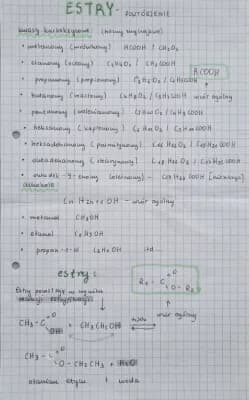 ESTRY - POWTÓRZENIE
kwasy karboksylowe (nazwy zwyczajowe)
• metanowy (mrówkowy) HCOOH / CH2O2
• etanowy (octowy) C2H4O2 / CH3COOH
RCOOH
• propanowy (propionowy) C3H6O2 / C2H5COOH
• butanowy (masłowy) C4H8O2 / C3H7COOH wzór ogólny
• pentanowy (walerianowy) C5H10O2 / C4H9COOH
• heksanowy (kapronowy) C6H12O2 / C5H11COOH
• heksadekanowy (palmitynowy) C16H32O2 / C15H31COOH
• oktadekanowy (stearynowy) C18H36O2 / C17H35COOH
• oktadek-9-enowy (oleinowy) - C17H33COOH
alkohole
CnH2n+1OH - wzór ogólny
• metanol CH3OH
• etanol C2H5OH
• propan-1-ol C3H7OH itd...
estry:
R1 - C O O - R2
Estry powstają w wyniku
reakcji estryfikacji
wzór ogólny
CH3-C O OH + CH3CH2OH H2SO4
CH3-C O O-CH2CH3 + H2O
etanian etylu + woda